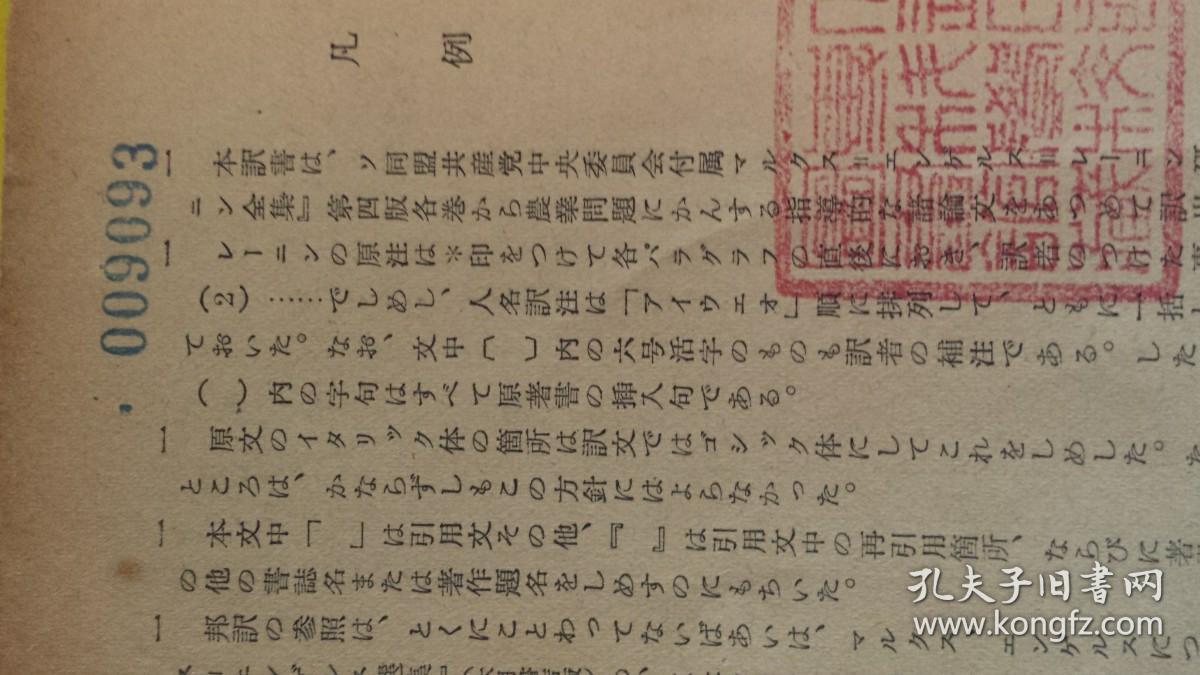 凡例
一 本訳書は、ソ同盟共産党中央委員会付属マルクス＝エンゲルス＝レーニン
ニン全集』第四版各巻から農業問題にかんする指導的な諸論文をあつめて訳
一 レーニンの原注は＊印をつけて各パラグラフの直後におき、訳者のつけた
（2）……でしめし、人名訳注は「アイウエオ」順に排列して、ともに一括し
ておいた。なお、文中〔 〕内の六号活字のものも訳者の補注である。した
（ ）内の字句はすべて原著書の挿入句である。
一 原文のイタリック体の箇所は訳文ではゴシック体にしてこれをしめした。た
ところは、かならずしもこの方針にはよらなかった。
一 本文中「 」は引用文その他、『 』は引用文中の再引用箇所、ならびに著
の他の書誌名または著作題名をしめすのにもちいた。
一 邦訳の参照は、とくにことわってないばあいは、マルクス＝エンゲルスにつ
009093
孔夫子旧书网
www.kongfz.com